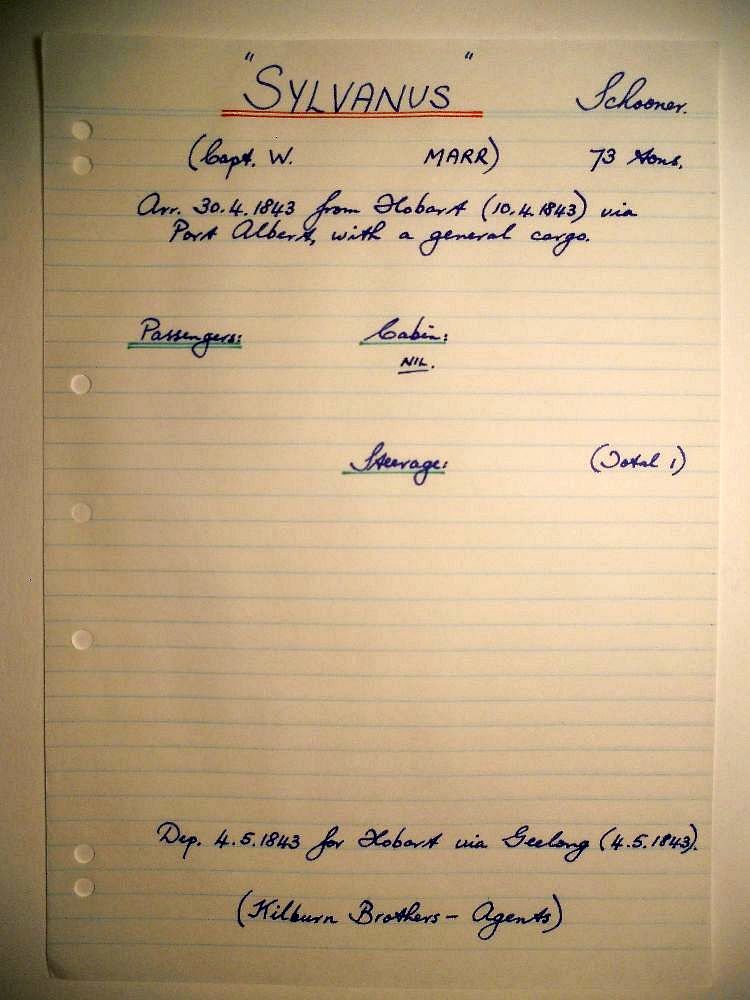 "SYLVANUS" Schooner.
(Capt. W. MARR) 73 tons.
Arr. 30.4.1843 from Hobart (10.4.1843) via
Port Albert, with a general cargo.
Passengers: Cabin:
NIL.
Steerage: (Total 1)
Dep. 4.5.1843 for Hobart via Geelong (4.5.1843).
(Kilburn Brothers - Agents)